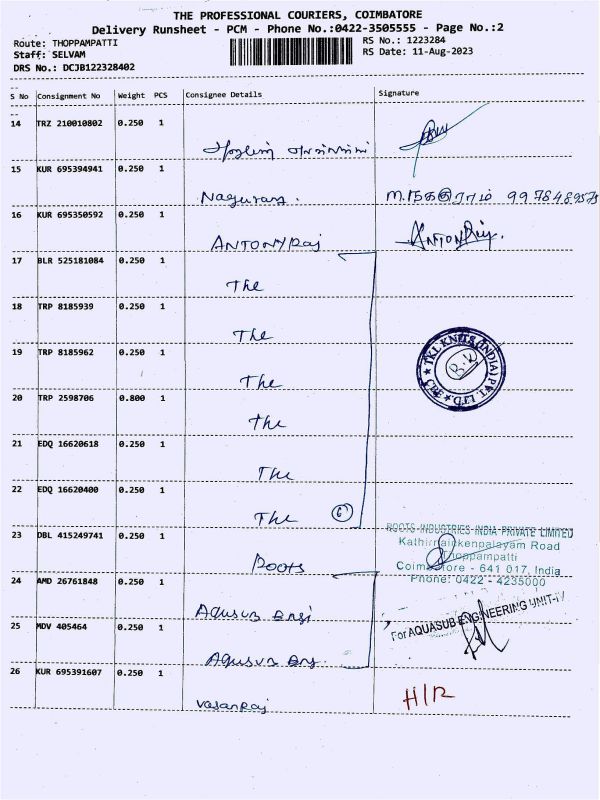 THE PROFESSIONAL COURIERS, COIMBATORE
Delivery Runsheet - PCM - Phone No.:0422-3505555 - Page No.:2
Route: THOPPAMPATTI RS No.: 1223284
Staff: SELVAM RS Date: 11-Aug-2023
DRS No.: DCJB122328402
S No Consignment No Weight PCS Consignee Details Signature
14 TRZ 210010802 0.250 1
15 KUR 695394941 0.250 1
Naguraj. ம.நகுராம்
16 KUR 695350592 0.250 1
ANTONYRaj ANTONYRaj.
17 BLR 525181084 0.250 1
The
18 TRP 8185939 0.250 1
The
19 TRP 8185962 0.250 1
The
TKL KNITS (INDIA) PVT. LTD. CBE
B.K
20 TRP 2598706 0.800 1
The
21 EDQ 16620618 0.250 1
The
22 EDQ 16620400 0.250 1
The 6
23 DBL 415249741 0.250 1
Roots
ROOTS INDUSTRIES INDIA PRIVATE LIMITED
Kathirnaickenpalayam Road
Thoppampatti
Coimbatore - 641 017, India
Phone: 0422 - 4235000
24 AMD 26761848 0.250 1
Aqusub Engi
For AQUASUB ENGINEERING UNIT-IV
25 MDV 405464 0.250 1
Aqusub Eng.
26 KUR 695391607 0.250 1
Vasanraj H/R